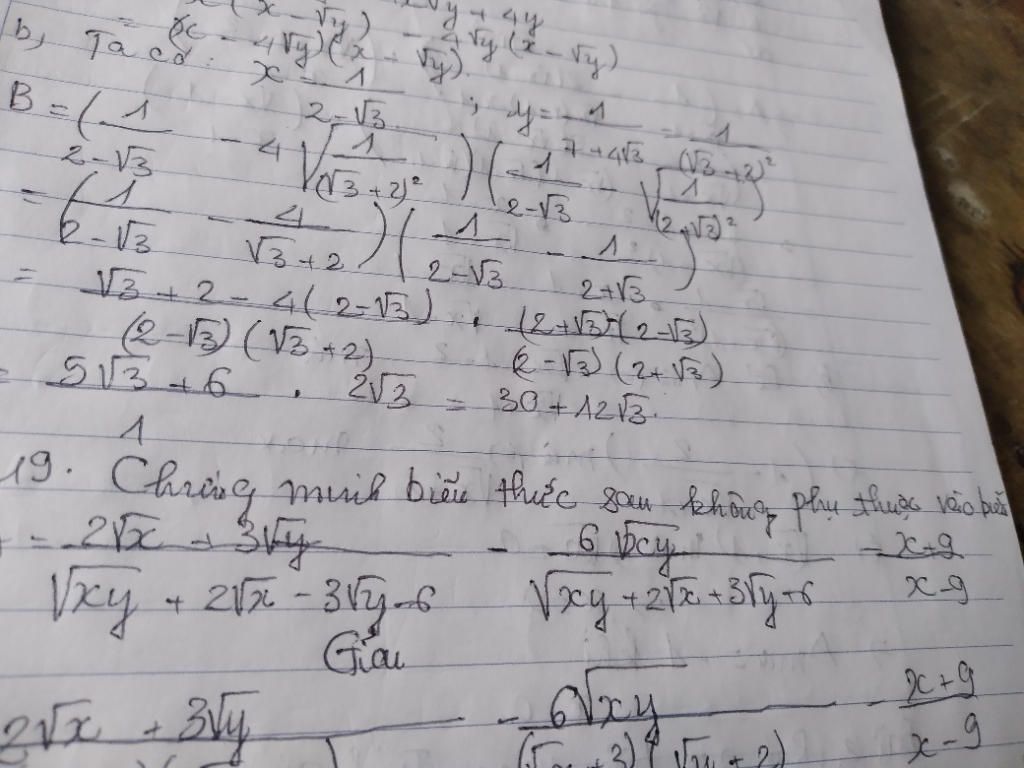 x(x - √y) - 4√y(x - √y)
= (x - 4√y)(x - √y)
b, Ta có: x = 1/(2 - √3) ; y = 1/(7 + 4√3) = 1/(√3 + 2)²
B = (1/(2 - √3) - 4√(1/(√3 + 2)²)) (1/(2 - √3) - √(1/(2 + √3)²))
= (1/(2 - √3) - 4/(√3 + 2)) (1/(2 - √3) - 1/(2 + √3))
= (√3 + 2 - 4(2 - √3))/((2 - √3)(√3 + 2)) . ((2 + √3) - (2 - √3))/((2 - √3)(2 + √3))
= (5√3 + 6)/1 . 2√3 = 30 + 12√3.
19. Chứng minh biểu thức sau không phụ thuộc vào biến
= (2√x + 3√y)/(√xy + 2√x - 3√y - 6) - (6√xy)/(√xy + 2√x + 3√y + 6) - (x + 9)/(x - 9)
Giải
(2√x + 3√y) - (6√xy)/((√x + 3)(√y + 2)) - (x + 9)/(x - 9)